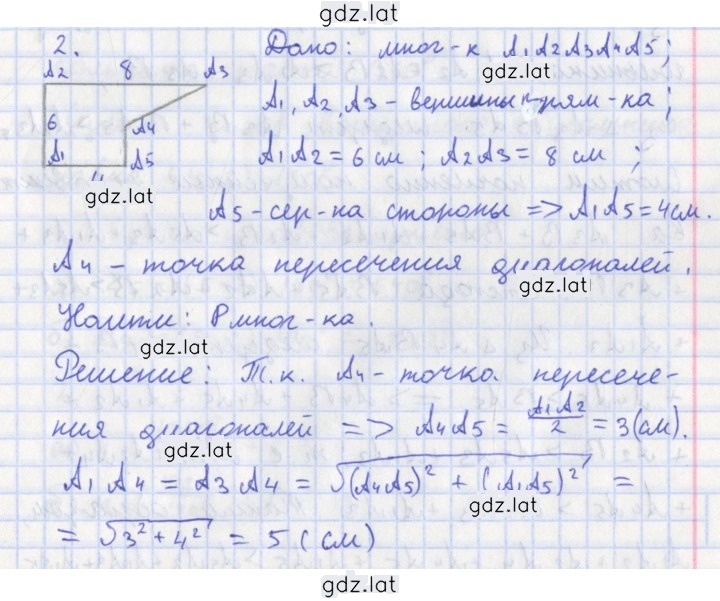 gdz.lat
2. Дано: мног-к A1A2A3A4A5;
A2 8 A3
gdz.lat
A1, A2, A3 - вершины прям-ка;
6
A4
A1 A5
A1A2 = 6 см ; A2A3 = 8 см ;
4
gdz.lat
A5 - сер-на стороны => A1A5 = 4см.
A4 - точка пересечения диагоналей.
gdz.lat
Найти: Pмног-ка.
gdz.lat
Решение: Т.к. A4 - точка пересече-
ния диагоналей => A4A5 = A1A2/2 = 3(см).
gdz.lat
A1A4 = A3A4 = √(A4A5)² + (A1A5)² =
gdz.lat
= √3² + 4² = 5 (см)
gdz.lat